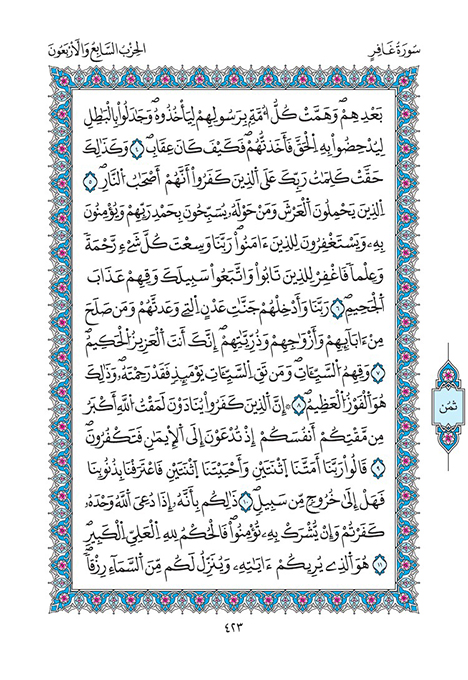 سُورَةُ غَافِرٍ
الحِزْبُ السَّابِعُ وَالْأَرْبَعُونَ
بَعْدِهِمْ وَهَمَّتْ كُلُّ أُمَّةٍ بِرَسُولِهِمْ لِيَأْخُذُوهُ وَجَٰدَلُوا۟ بِالْبَٰطِلِ
لِيُدْحِضُوا۟ بِهِ اِ۬لْحَقَّ فَأَخَذتُّهُمْ فَكَيْفَ كَانَ عِقَابِ ٤ وَكَذَٰلِكَ
حَقَّتْ كَلِمَٰتُ رَبِّكَ عَلَى اَ۬لذِينَ كَفَرُوٓا۟ أَنَّهُمُۥٓ أَصْحَٰبُ اُ۬لنَّارِ ٥
اَ۬لذِينَ يَحْمِلُونَ اَ۬لْعَرْشَ وَمَنْ حَوْلَهُۥ يُسَبِّحُونَ بِحَمْدِ رَبِّهِمْ وَيُؤْمِنُونَ
بِهِۦ وَيَسْتَغْفِرُونَ لِلذِينَ ءَامَنُوا۟ رَبَّنَا وَسِعْتَ كُلَّ شَےْءٍ رَّحْمَةً
وَعِلْماً فَاغْفِرْ لِلذِينَ تَابُوا۟ وَاتَّبَعُوا۟ سَبِيلَكَ وَقِهِمْ عَذَابَ
اَ۬لْجَحِيمِ ٦ رَبَّنَا وَأَدْخِلْهُمْ جَنَّٰتِ عَدْنٍ اِ۬لتِے وَعَدتَّهُمْ وَمَن صَلَحَ
مِنَ ـ ابَآئِهِمْ وَأَزْوَٰجِهِمْ وَذُرِّيَّٰتِهِمُۥٓ إِنَّكَ أَنتَ اَ۬لْعَزِيزُ اُ۬لْحَكِيمُ
٧ وَقِهِمُ اُ۬لسَّيِّـَٔاتِ وَمَن تَقِ اِ۬لسَّيِّـَٔاتِ يَوْمَئِذٍ فَقَدْ رَحِمْتَهُۥ وَذَٰلِكَ
هُوَ اَ۬لْفَوْزُ اُ۬لْعَظِيمُ ٨ ۞ إِنَّ اَ۬لذِينَ كَفَرُوا۟ يُنَادَوْنَ لَمَقْتُ اُ۬للَّهِ أَكْبَرُ
مِن مَّقْتِكُمُۥٓ أَنفُسَكُمُۥٓ إِذْ تُدْعَوْنَ إِلَى اَ۬لْإِيمَٰنِ فَتَكْفُرُونَ
٩ قَالُوا۟ رَبَّنَآ أَمَتَّنَا اَ۪ثْنَتَيْنِ وَأَحْيَيْتَنَا اَ۪ثْنَتَيْنِ فَاعْتَرَفْنَا بِذُنُوبِنَا
فَهَلِ اِلَىٰ خُرُوجٍ مِّن سَبِيلٍ ١٠ ذَٰلِكُم بِأَنَّهُۥٓ إِذَا دُعِيَ اَ۬للَّهُ وَحْدَهُۥ
كَفَرْتُمْ وَإِنْ يُّشْرَكْ بِهِۦ تُؤْمِنُوا۟ فَالْحُكْمُ لِلهِ اِ۬لْعَلِيِّ اِ۬لْكَبِيرِ
١١ هُوَ اَ۬لذِے يُرِيكُمُۥٓ ءَايَٰتِهِۦ وَيُنَزِّلُ لَكُم مِّنَ اَ۬لسَّمَآءِ رِزْقاً
ثُمُن
٤٢٣